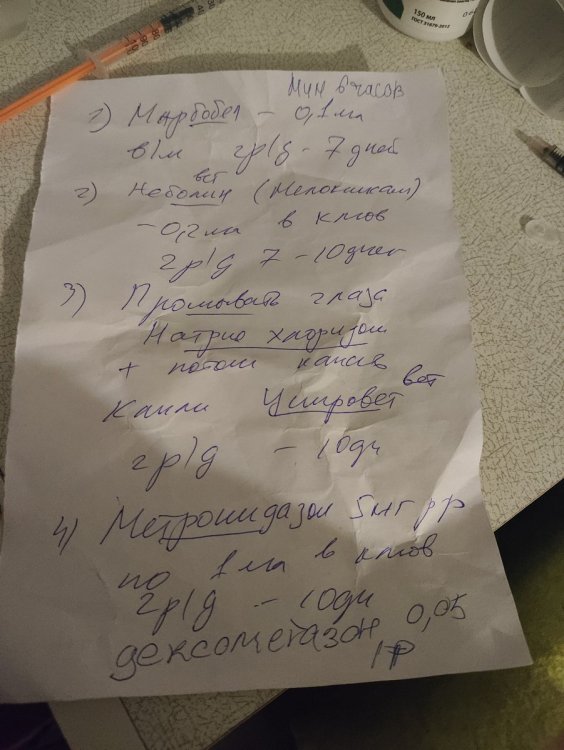 мин 6 часов
1) Марбобел - 0,1 мл
в/м 2р/д - 7 дней
вет
2) (Мелоксикам)
- 0,2 мл в клюв
2р/д 7 - 10 дней
3) Промывать глаза
Натрио хлоридом
+ потом
Капли Ципровет вет
2р/д - 10дн
4) Метронидазол 5мг рр
по 1 мл в клюв
2р/д - 10дн
дексометазон 0,05
1р
150 МЛ